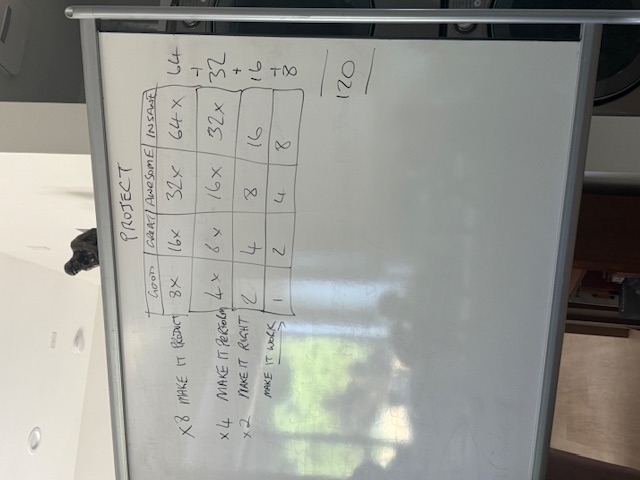 PROJECT
GOOD GREAT AWESOME INSANE
X8 MAKE IT PRODUCT 8x 16x 32x 64x 64
+
X4 MAKE IT PERFORM 4x 8x 16x 32x 32
+
x2 MAKE IT RIGHT 2 4 8 16 16
+
MAKE IT WORK 1 2 4 8 8
120